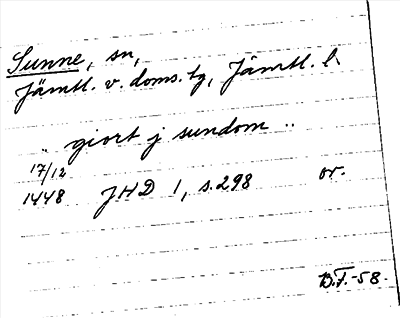 Sunne, sn,
Jämtl. v. doms. tg, Jämtl. l.
.. giort j sundom ..
17/12
1448 JHD 1, s. 298 or.
B.F.-58.